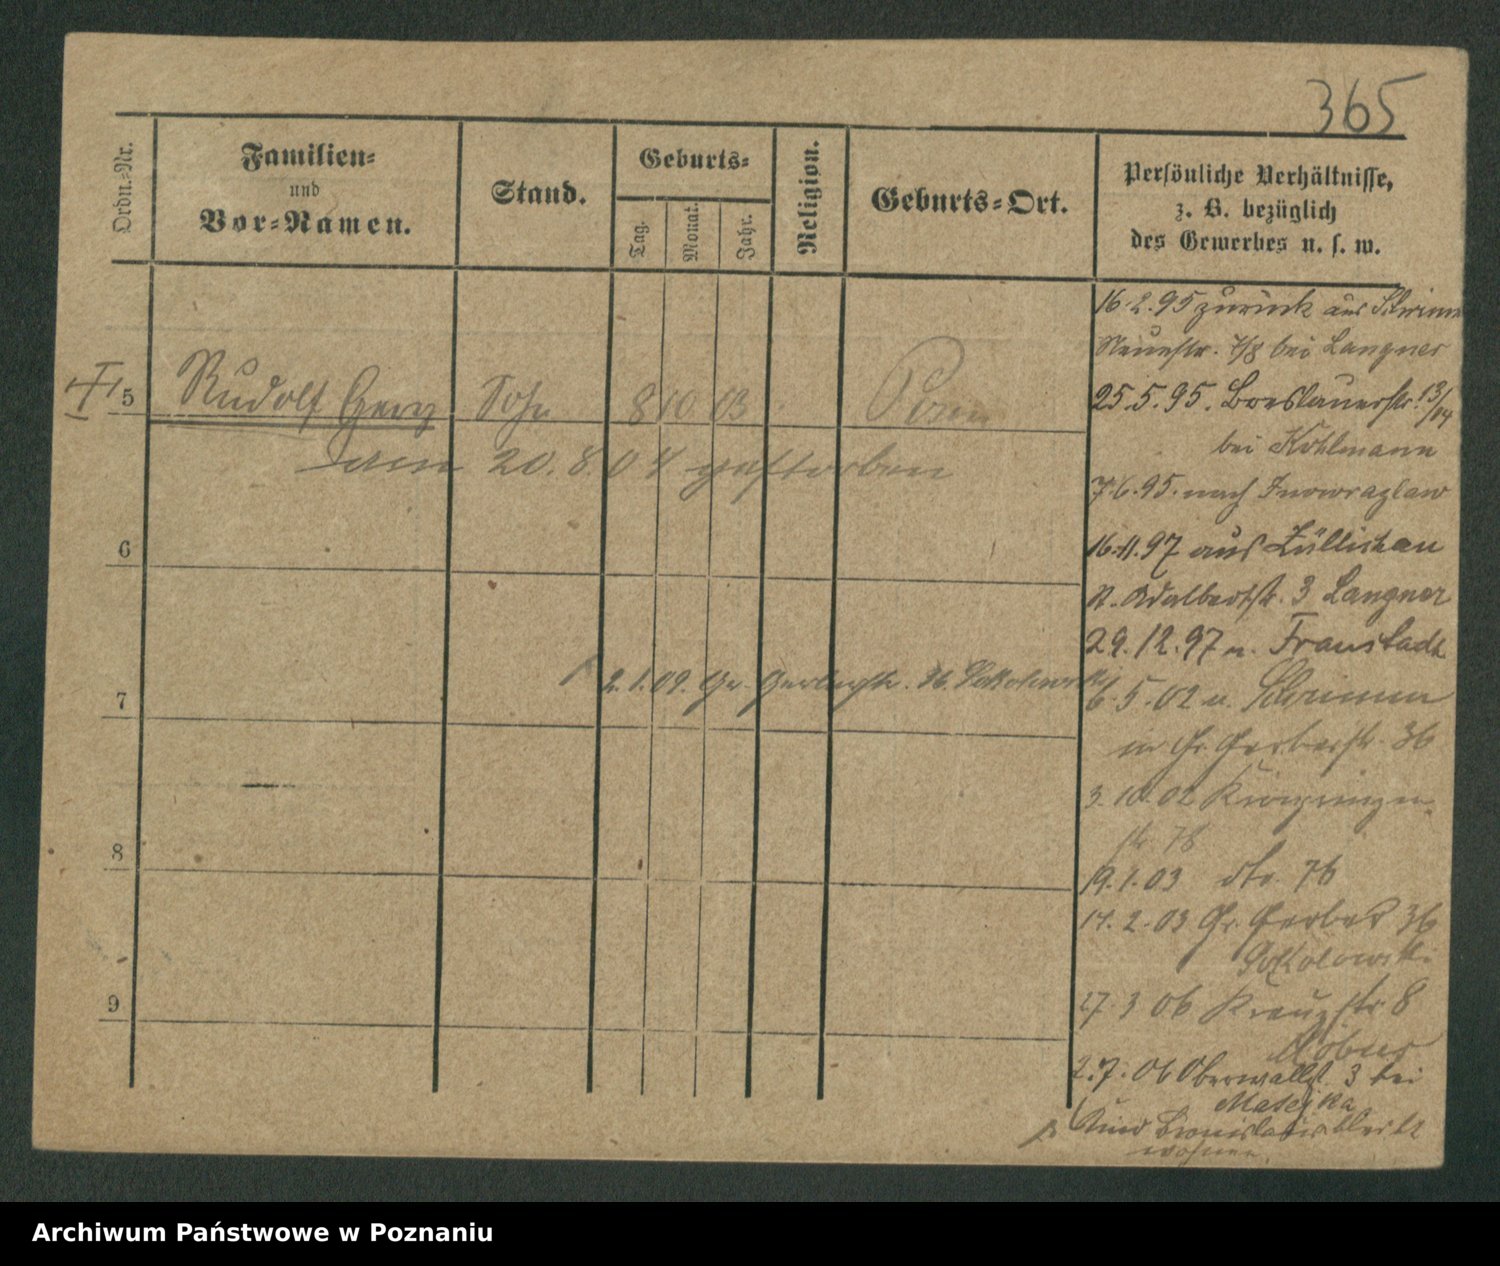 365
Ordn.-Nr.
Familien-
und
Vor-Namen.
Stand.
Geburts-
Tag.
Monat.
Jahr.
Religion.
Geburts-Ort.
Persönliche Verhältnisse,
z. B. bezüglich
des Gewerbes u. s. w.
5 Rudolf Sohn 8 10 03 Posen
am 20.8.04 gestorben
6
7
2.1.09. Gr. Gerberstr. 36. Sokolowski
8
9
16.2.95 zurück aus Schrimm
Neuestr. 7/8 bei Langner
25.5.95. Breslauerstr. 13/14
bei Kohlmann
7.6.95. nach Inowrazlaw
16.11.97 aus Züllichau
St. Adalbertstr. 3 Langner
29.12.97 n. Fraustadt
6.5.02 Schrimm
Gr. Gerberstr. 36
3.10.02 Kronprinzen-
str. 78
19.1.03 dto. 76
14.2.03 Gr. Gerber 36
Sokolowski
27.3 06 Kreuzstr 8
2.7.06 Oberwallst. 3 bei
Matejka
Kind Bronislawa bleibt
wohnen.
Archiwum Państwowe w Poznaniu